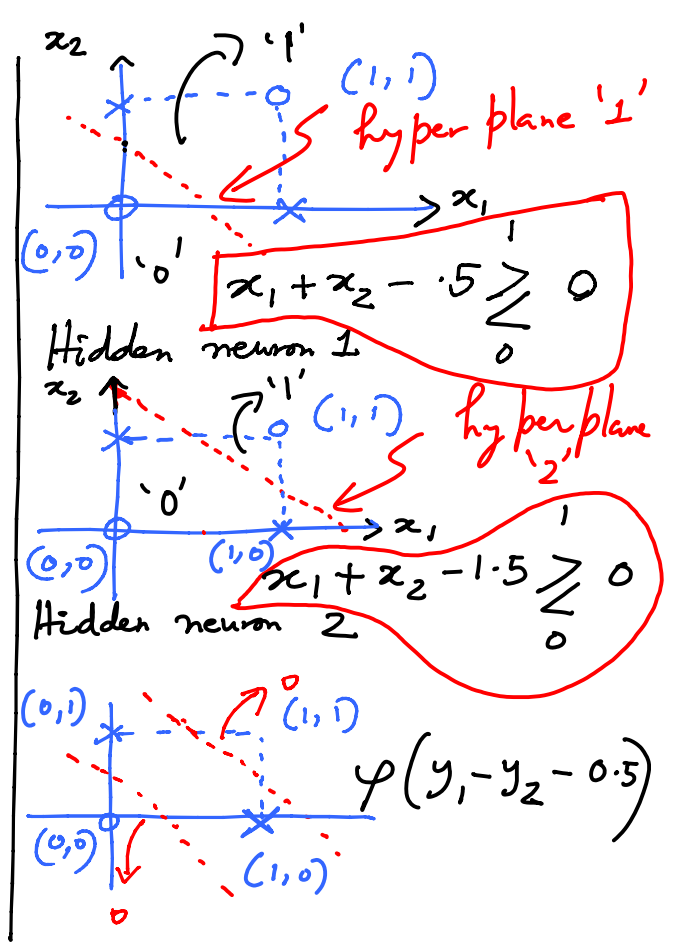 x₂ '1' (1,1)
hyper plane '1'
x₁
(0,0) '0'
x₁ + x₂ - .5 ≷ 0
1
0
Hidden neuron 1
x₂ '1' (1,1)
hyper plane
'2'
'0'
x₁
(0,0) (1,0)
x₁ + x₂ - 1.5 ≷ 0
1
0
Hidden neuron 2
(0,1) 0 (1,1)
φ(y₁ - y₂ - 0.5)
(0,0) (1,0)
0